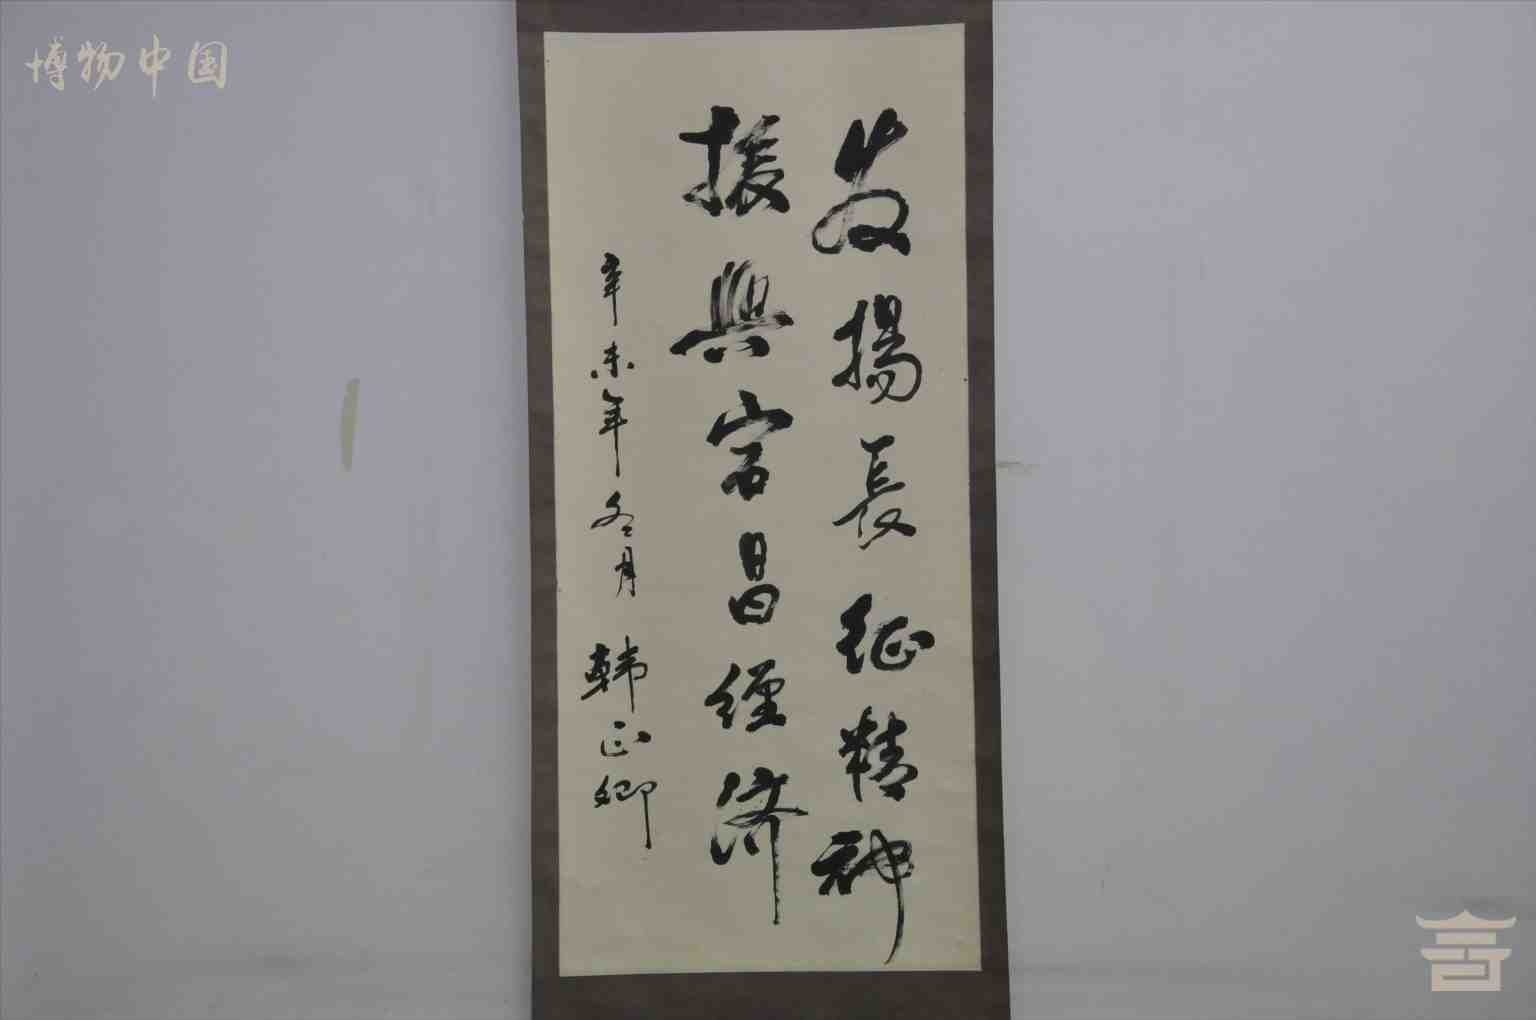 博物中国
发揚長征精神
振興宕昌经济
辛未年冬月 韩正卿